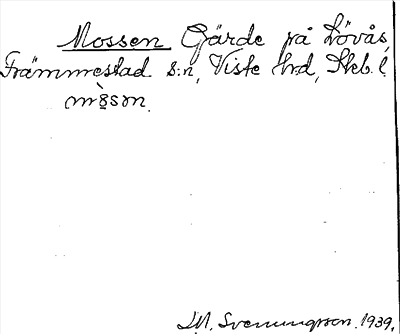 Mossen Gärde på Lövås,
Främmestad s:n, Viste hrd, Skb. l.
mòsɷn.
I.M. Svenungsson. 1939.